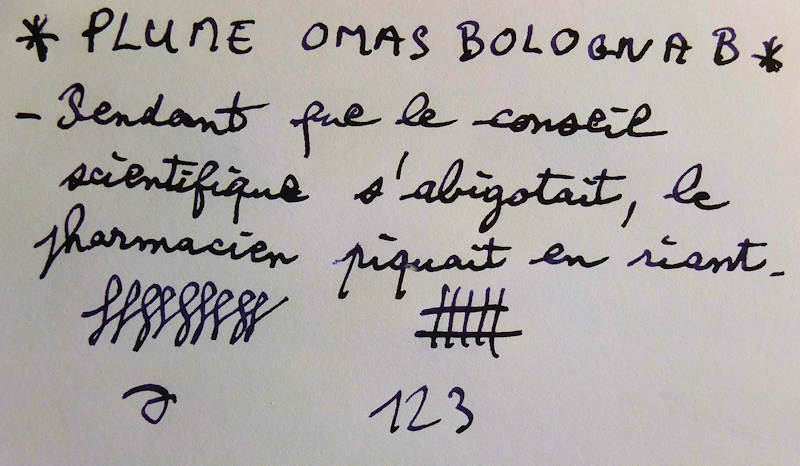 * PLUME OMAS BOLOGNA B *
- Pendant que le conseil
scientifique s'abigotait, le
pharmacien piquait en riant.
123